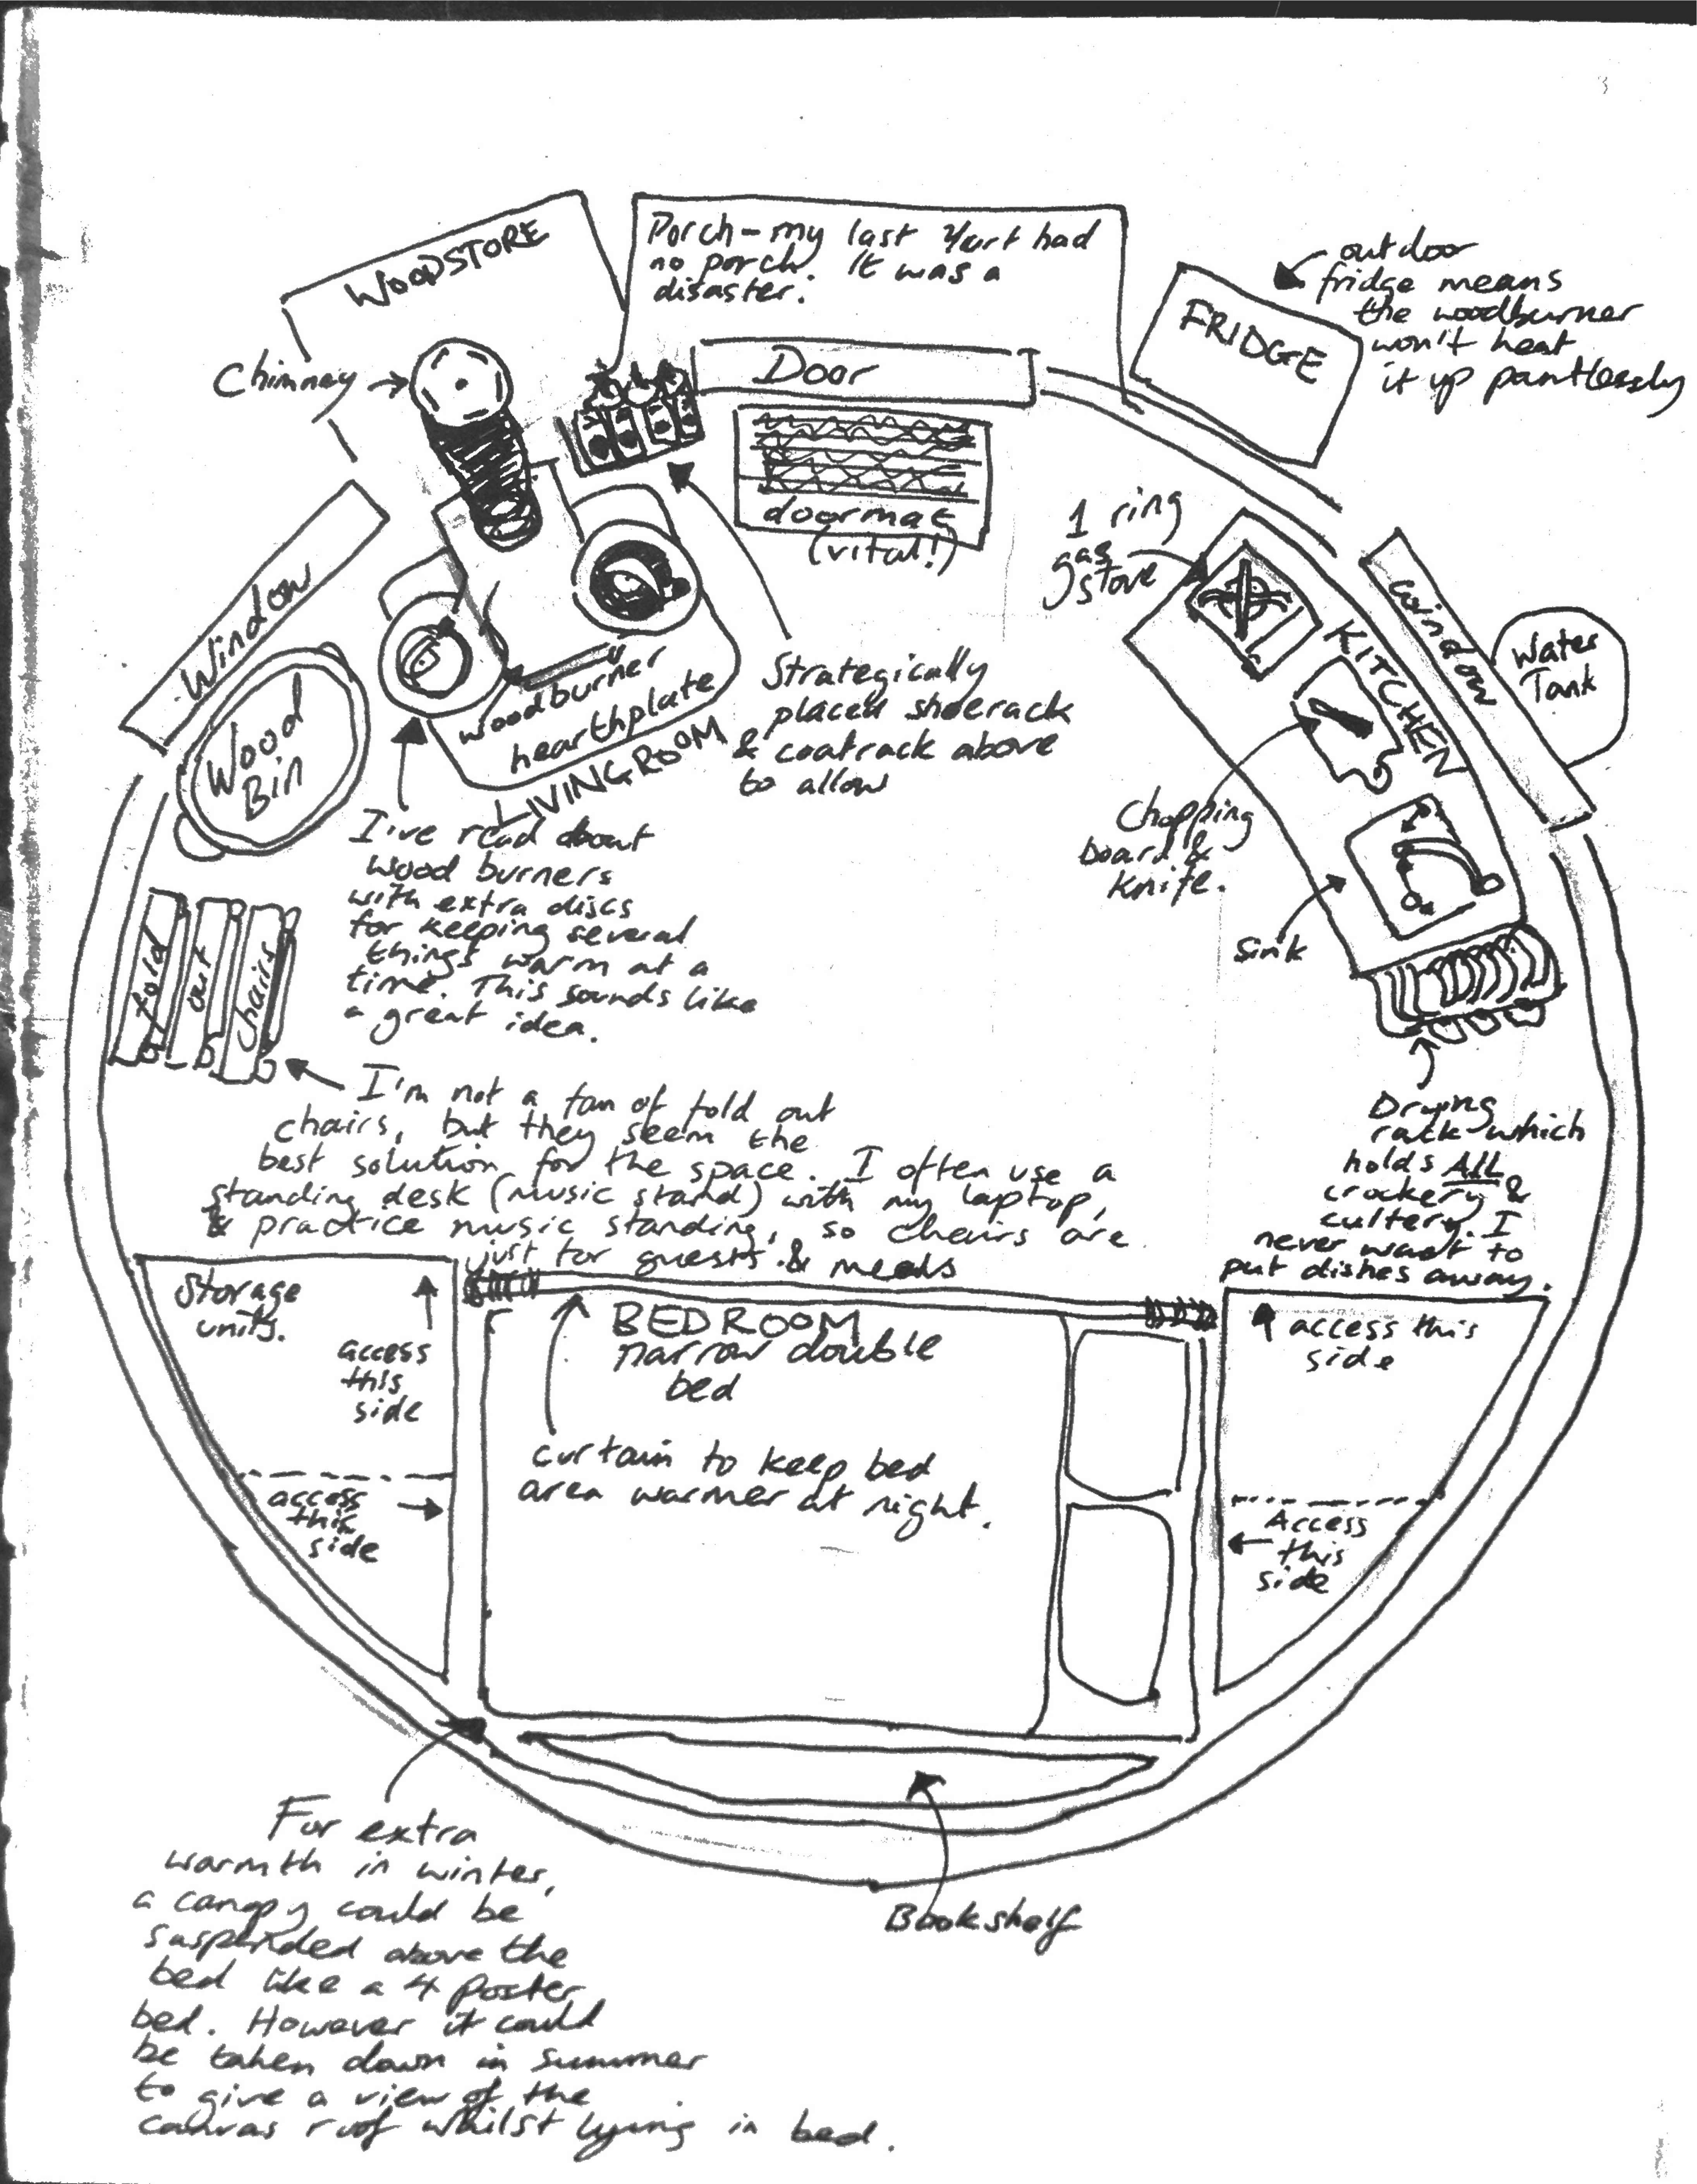 WOODSTORE
Porch - my last Yurt had
no porch. It was a
disaster.
outdoor
fridge means
the woodburner
won't heat
it up
FRIDGE
Chimney
Door
doormat
(vital!)
Window
Wood
Bin
woodburner
hearthplate
LIVINGROOM
Strategically
placed shoerack
& coatrack above
to allow
1 ring
gas
stove
KITCHEN
window
Water
Tank
Chopping
board &
knife.
Sink
I've read about
wood burners
with extra discs
for keeping several
things warm at a
time. This sounds like
a great idea.
fold
out
chairs
I'm not a fan of fold out
chairs, but they seem the
best solution for the space. I often use a
standing desk (music stand) with my laptop,
& practice music standing, so chairs are
just for guests & meals
Drying
rack which
holds ALL
crockery &
cultery. I
never want to
put dishes away.
Storage
units.
access
this
side
access
this
side
BEDROOM
narrow double
bed
curtain to keep bed
area warmer at night.
access this
side
Access
this
side
For extra
warmth in winter,
a canopy could be
suspended above the
bed like a 4 poster
bed. However it could
be taken down in summer
to give a view of the
canvas roof whilst lying in bed.
Bookshelf